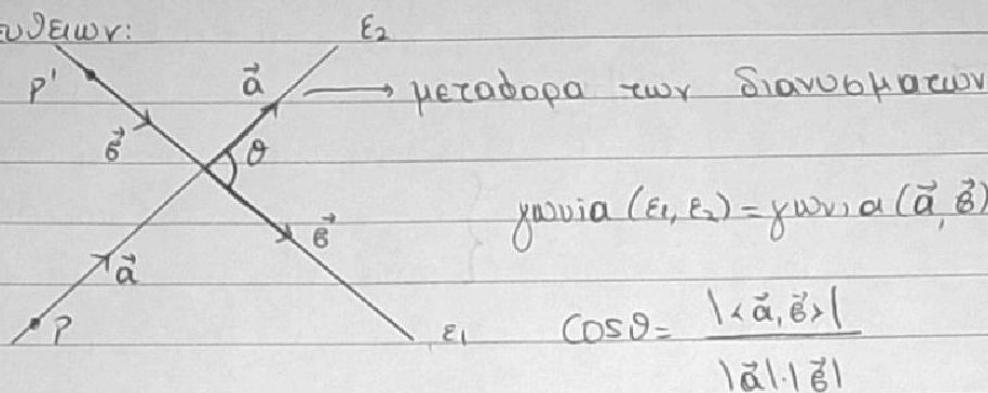 υθειων:
ε₂
P'
a⃗
→ μεταφορα των διανυσματων
β⃗
θ
γωνία (ε₁, ε₂) = γωνια (a⃗, β⃗)
β⃗
a⃗
P
ε₁
cosθ = |<a⃗, β⃗>| / |a⃗|·|β⃗|